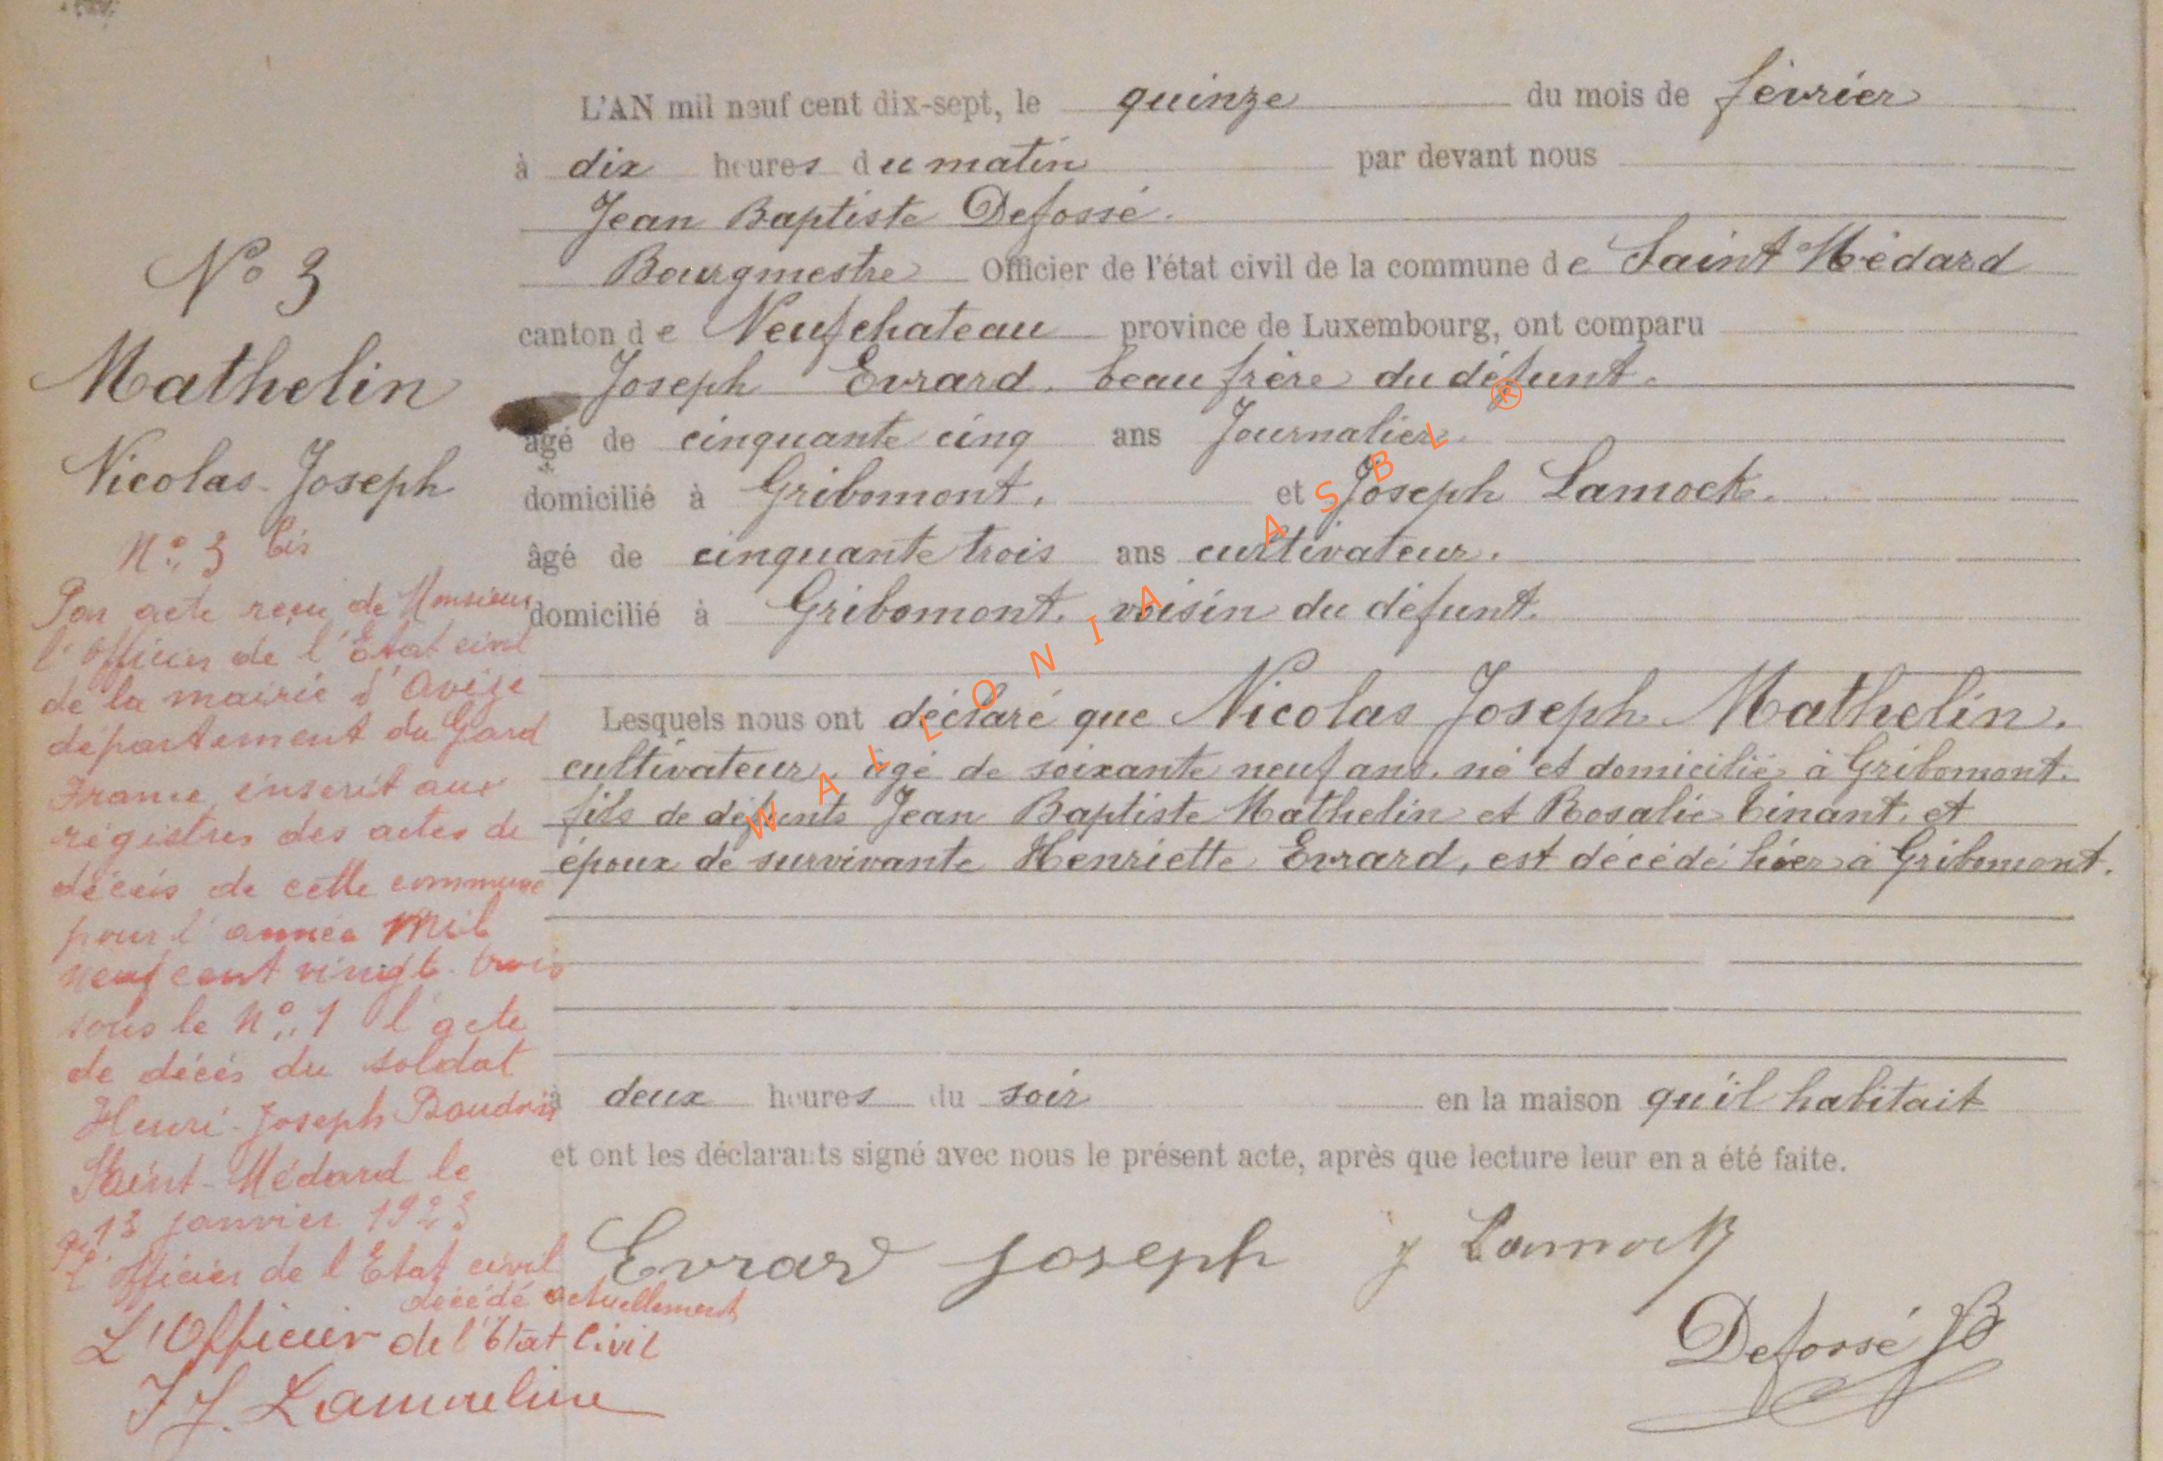 N° 3
Mathelin
Nicolas-Joseph
N° 3 bis
Par acte reçu de Monsieur
l'officier de l'Etat civil
de la mairie d'Avèze
département du Gard
France inscrit aux
régistres des actes de
décès de cette commune
pour l'année mil
neuf cent vingt-trois
sous le N° 1 l'acte
de décès du soldat
Henri-Joseph
Saint-Médard le
13 janvier 1923
L'officier de l'Etat civil
décédé actuellement
L'Officier de l'Etat Civil
L'AN mil neuf cent dix-sept, le quinze du mois de février
à dix heures du matin par devant nous
Jean Baptiste Defossé.
Bourgmestre Officier de l'état civil de la commune de Saint Médard
canton de Neufchateau province de Luxembourg, ont comparu
Joseph Evrard. beau frère du défunt.
âgé de cinquante cinq ans Journalier.
domicilié à Gribomont. et Joseph Lamock.
âgé de cinquante trois ans cultivateur.
domicilié à Gribomont. voisin du défunt.
Lesquels nous ont déclaré que Nicolas Joseph Mathelin.
cultivateur. âgé de soixante neuf ans. né et domicilié à Gribomont.
fils de défunts Jean Baptiste Mathelin et Rosalie Tinant, et
époux de survivante Henriette Evrard, est décédé hier à Gribomont.
à deux heures du soir en la maison qu'il habitait
et ont les déclarants signé avec nous le présent acte, après que lecture leur en a été faite.
Evrard Joseph J Lamock
Defossé JB
WALLONIA ASBL ®